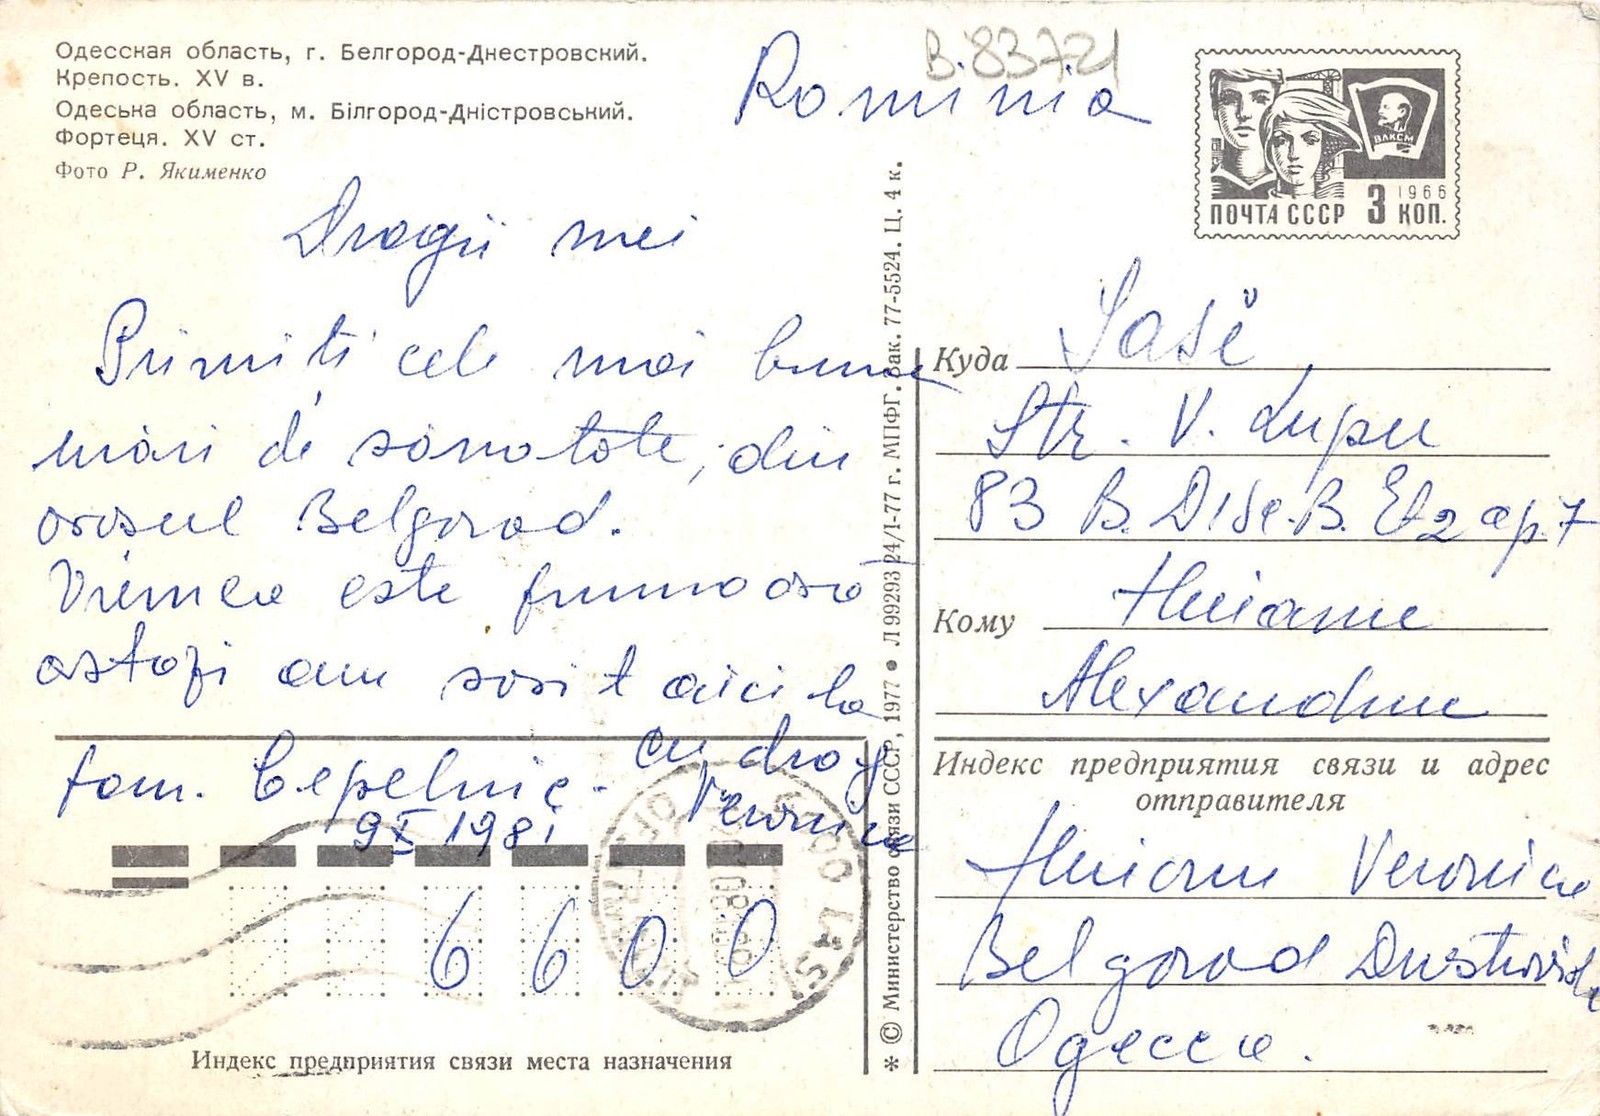 Одесская область, г. Белгород-Днестровский.
Крепость. XV в.
Одеська область, м. Білгород-Дністровський.
Фортеця. XV ст.
Фото Р. Якименко
B.83721
Rominia
1966
ВЛКСМ
ПОЧТА СССР 3 КОП.
Dragii mei
Primiti cele mai bune
urări de sănatate, din
orasul Belgorad.
Vremea este frumoasă
astazi am sosit aici la
fam. Cepelnic.
cu drag
Veronica
9 X 1981
6600
Индекс предприятия связи места назначения
* © Министерство связи СССР, 1977 • Л 99293 24/I-77 г. МПФГ. Зак. 77-5524. Ц. 4 к.
Куда Iasi
Str. V. Lupu
83 B. D1 Sc. B. Et 2 ap. 7
Кому
Alexandru
Индекс предприятия связи и адрес
отправителя
Veronica
Belgorod
Одесса.